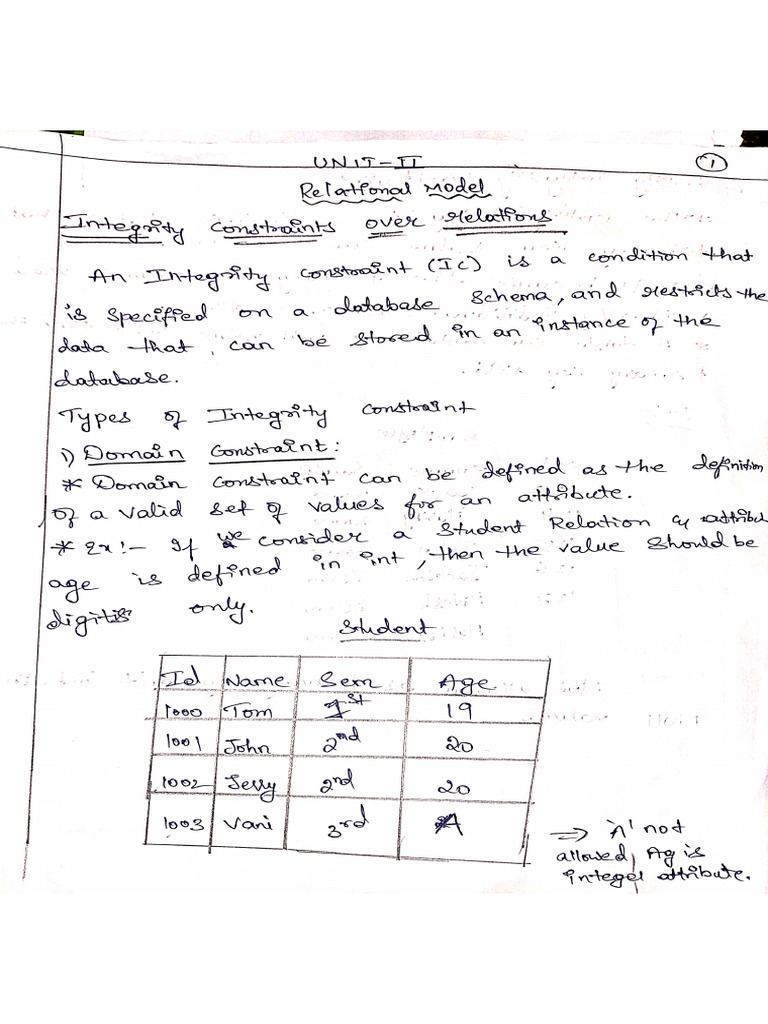 UNIT-II
1
Relational Model
Integrity Constraints over relations
An Integrity constraint (IC) is a condition that
is specified on a database schema, and restricts the
data that can be stored in an instance of the
database.
Types of Integrity constraint
1) Domain Constraint:
* Domain constraint can be defined as the definition
of a valid set of values for an attribute.
* Ex:- If we consider a student Relation & attribut
age is defined in int, then the value should be
digits only.
Student
Id Name Sem Age
1000 Tom 1st 19
1001 John 2nd 20
1002 Jerry 2nd 20
1003 Vani 3rd A
⇒ 'A' not
allowed, Ag is
integer attribute.